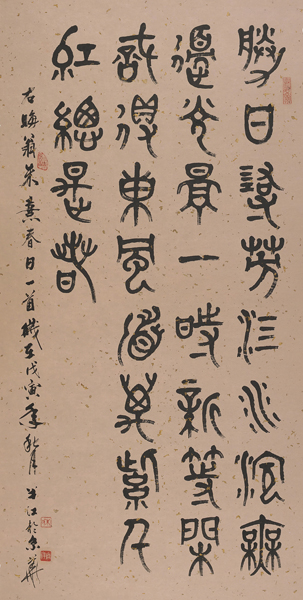 勝日尋芳泗水濱無
邊光景一時新等閒
識得東風面萬紫千
紅總是春
右晦翁朱熹春日一首歲在戊寅年秋月半江於京華